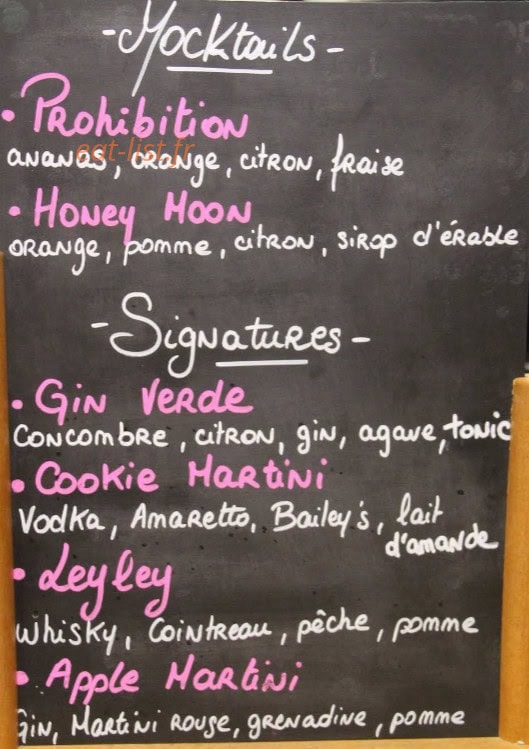 -Mocktails-
• Prohibition
eat-list.fr
ananas, orange, citron, fraise
• Honey Moon
orange, pomme, citron, sirop d'érable
-Signatures-
• Gin Verde
concombre, citron, gin, agave, tonic
• Cookie Martini
Vodka, Amaretto, Bailey's, lait
d'amande
• Leyley
Whisky, Cointreau, pêche, pomme
• Apple Martini
Gin, Martini rouge, grenadine, pomme